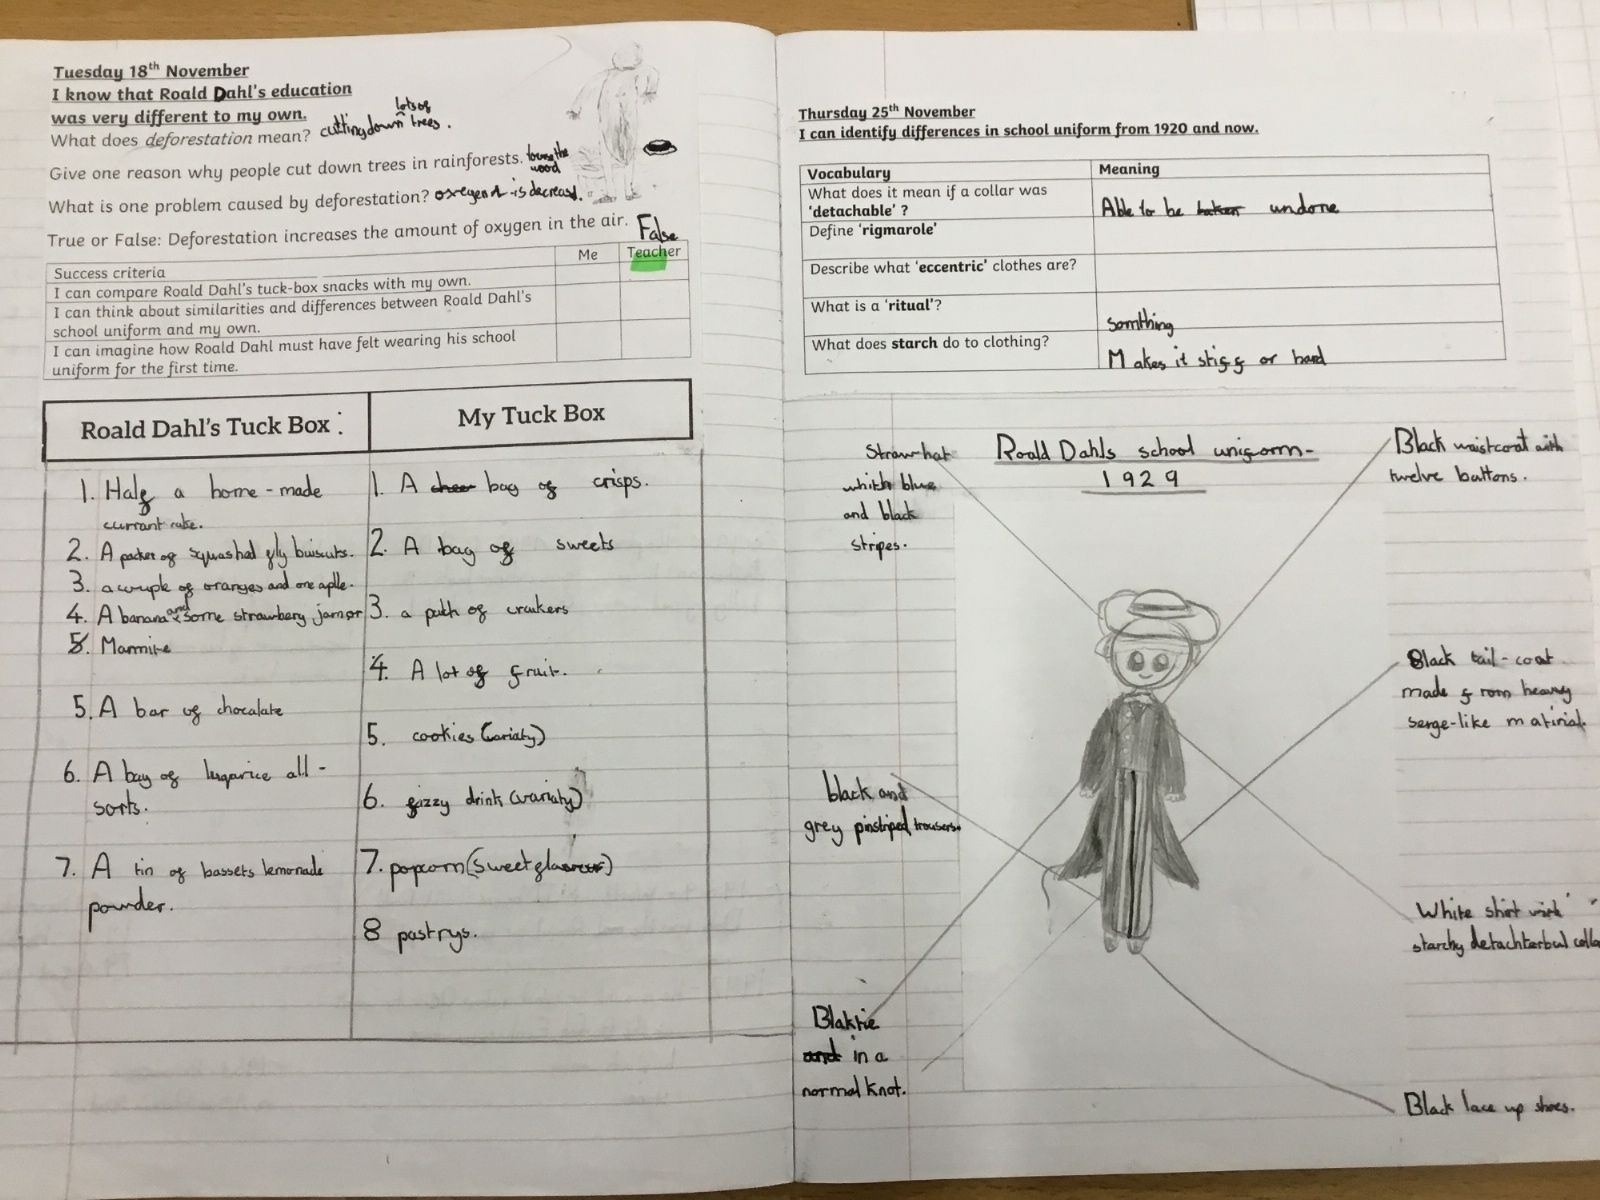 Tuesday 18th November
I know that Roald Dahl's education
was very different to my own.
What does deforestation mean? cutting down lots of trees.
Give one reason why people cut down trees in rainforests. to use the
wood
What is one problem caused by deforestation? oxregen is decreasd.
True or False: Deforestation increases the amount of oxygen in the air. False
Success criteria Me Teacher
I can compare Roald Dahl's tuck-box snacks with my own.
I can think about similarities and differences between Roald Dahl's
school uniform and my own.
I can imagine how Roald Dahl must have felt wearing his school
uniform for the first time.
Roald Dahl's Tuck Box :
1. Half a home-made
currant cake.
2. A packet of squashed fly buiscuts.
3. a couple of oranges and one aplle.
4. A banana and some strawbery jam or
5. Marmite
5. A bar of chocalate
6. A bag of all-
sorts.
7. A tin of bassets lemonade
powder.
My Tuck Box
1. A bag of crisps.
2. A bag of sweets
3. a of
4. A lot of fruit.
5. cookies (variaty)
6. fizzy drink (variaty)
7. popcorn (sweet
8 pastrys.
Thursday 25th November
I can identify differences in school uniform from 1920 and now.
Vocabulary Meaning
What does it mean if a collar was
'detachable' ? Able to be undone
Define 'rigmarole'
Describe what 'eccentric' clothes are?
What is a 'ritual'? somthing
What does starch do to clothing? Makes it stiff or hard
Roald Dahls school uniform-
1929
Straw hat
whith blue
and black
stripes.
black and
grey pinstriped trousers.
Blaktie
and in a
normal knot.
Black waistcoat with
twelve buttons.
Black tail-coat
made from heavy
serge-like matirial.
White shirt with
starchy detachterbul
Black lace up shoes.